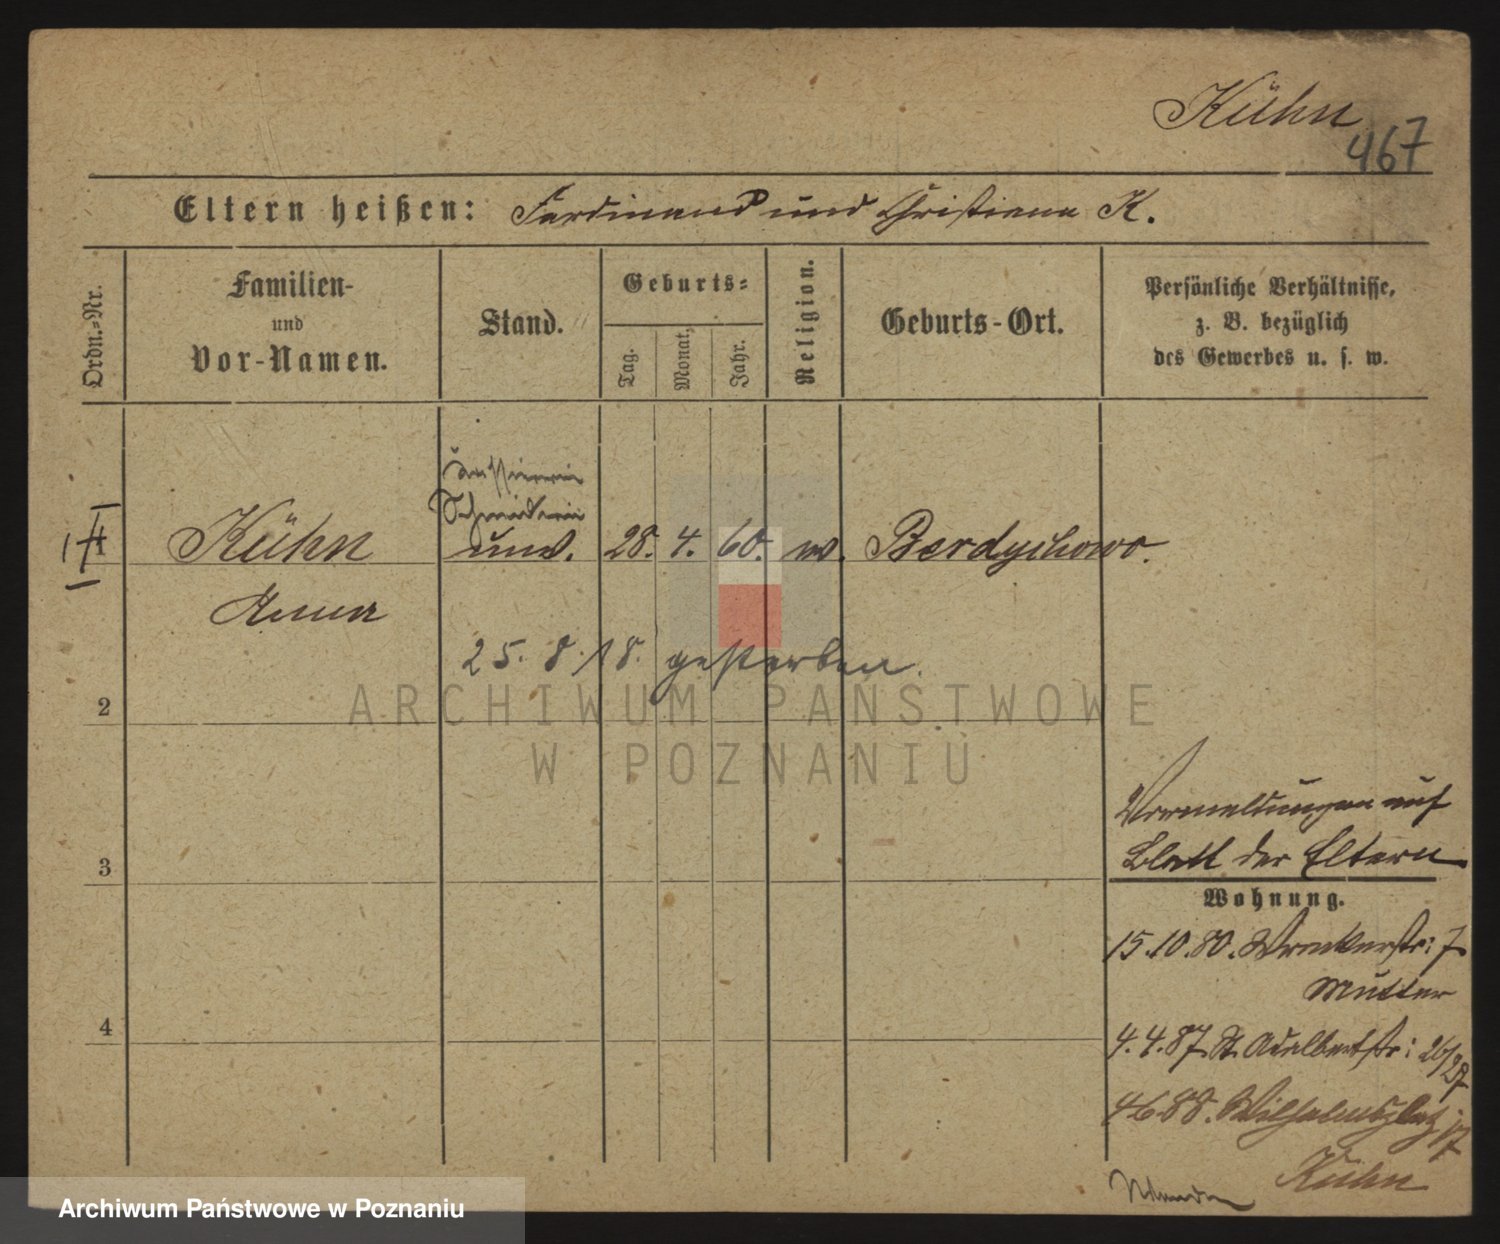 Kühn
467
Eltern heißen: Ferdinand und Christiane K.
Ordn.-Nr.
Familien-
und
Vor-Namen.
Stand.
Geburts-
Tag.
Monat.
Jahr.
Religion.
Geburts-Ort.
Persönliche Verhältnisse,
z. B. bezüglich
des Gewerbes u. s. w.
Schneiderin
1 Kühn unv. 28. 4. 60. w. Berdychowo.
Anna
25. 8. 18. gestorben.
2
ARCHIWUM PAŃSTWOWE
W POZNANIU
Vermeldungen auf
Blatt der Eltern
3
Wohnung.
15.10.80. str: 7
Mutter
4
4.4.87. St. Adalbertstr: 26/27
4.6.88. Wilhelmsplatz 17
Kühn
Archiwum Państwowe w Poznaniu